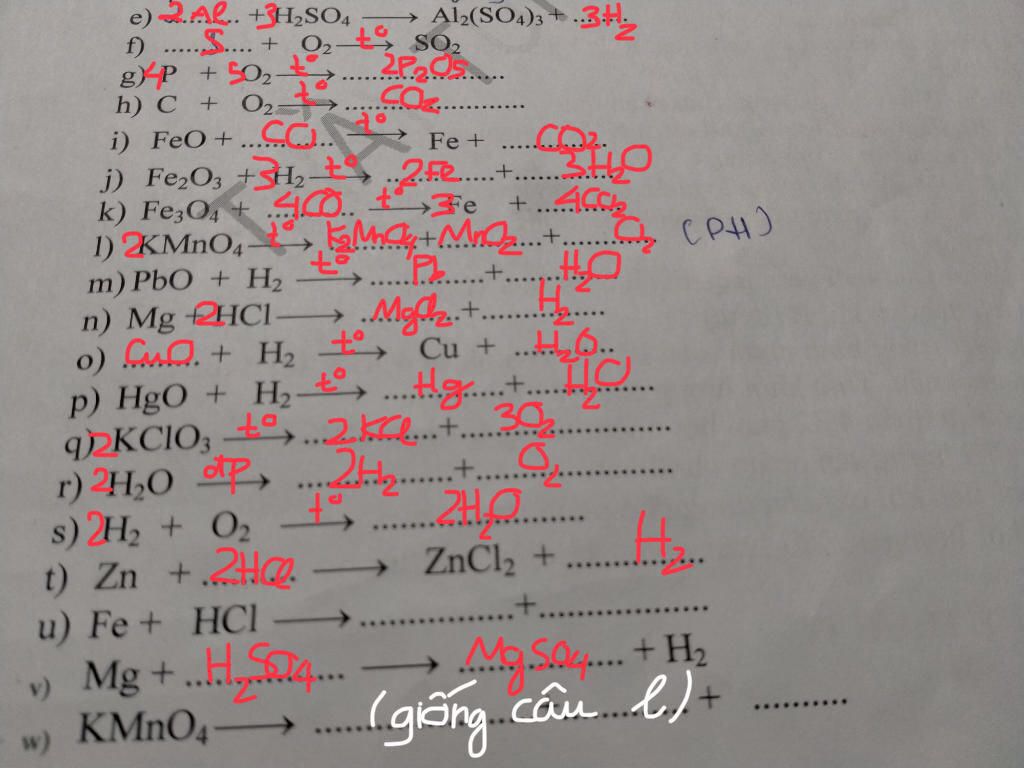 e) 2Al + 3H₂SO₄ ⟶ Al₂(SO₄)₃ + 3H₂
f) S + O₂ t° ⟶ SO₂
g) 4P + 5O₂ t° ⟶ 2P₂O₅
h) C + O₂ t° ⟶ CO₂
i) FeO + CO t° ⟶ Fe + CO₂
j) Fe₂O₃ + 3H₂ t° ⟶ 2Fe + 3H₂O
k) Fe₃O₄ + 4CO t° ⟶ 3Fe + 4CO₂
l) 2KMnO₄ t° ⟶ K₂MnO₄ + MnO₂ + O₂ (PH)
m) PbO + H₂ t° ⟶ Pb + H₂O
n) Mg + 2HCl ⟶ MgCl₂ + H₂
o) CuO + H₂ t° ⟶ Cu + H₂O
p) HgO + H₂ t° ⟶ Hg + H₂O
q) 2KClO₃ t° ⟶ 2KCl + 3O₂
r) 2H₂O đp ⟶ 2H₂ + O₂
s) 2H₂ + O₂ t° ⟶ 2H₂O
t) Zn + 2HCl ⟶ ZnCl₂ + H₂
u) Fe + HCl ⟶ .............. + ..............
v) Mg + H₂SO₄ ⟶ MgSO₄ + H₂
w) KMnO₄ ⟶ (giống câu l) + ..........